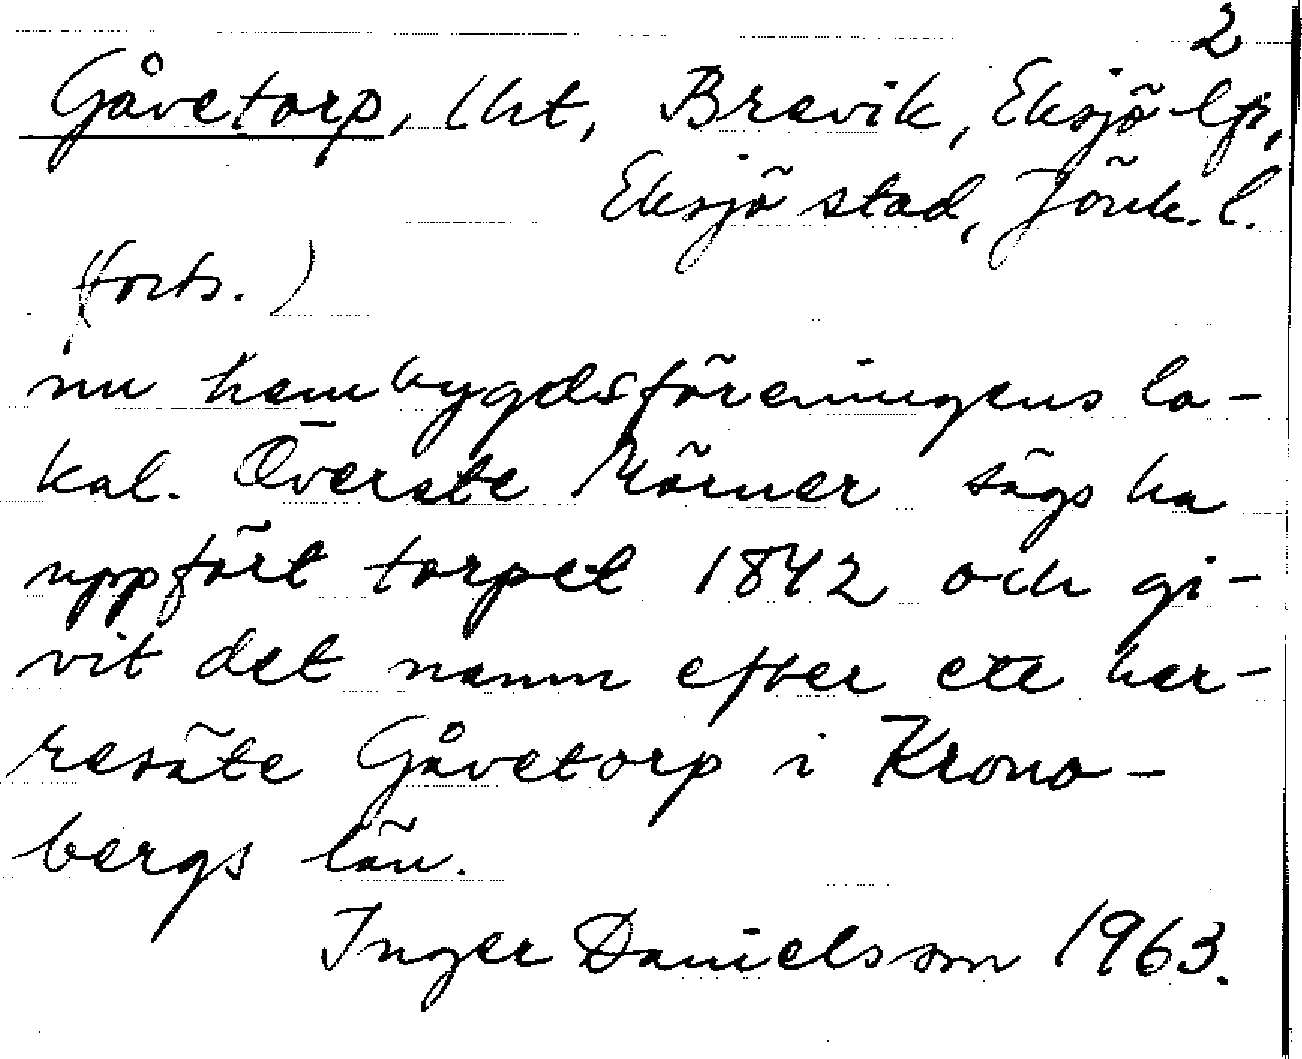 2
Gåvetorp, lht, Brevik, Eksjö lfs,
Eksjö stad, Jönk. l.
(forts.)
nu hembygdsföreningens lo-
kal. Överste Mörner sägs ha
uppfört torpet 1842 och gi-
vit det namn efter ett her-
resäte Gåvetorp i Krono-
bergs län.
Inger Danielsson 1963.